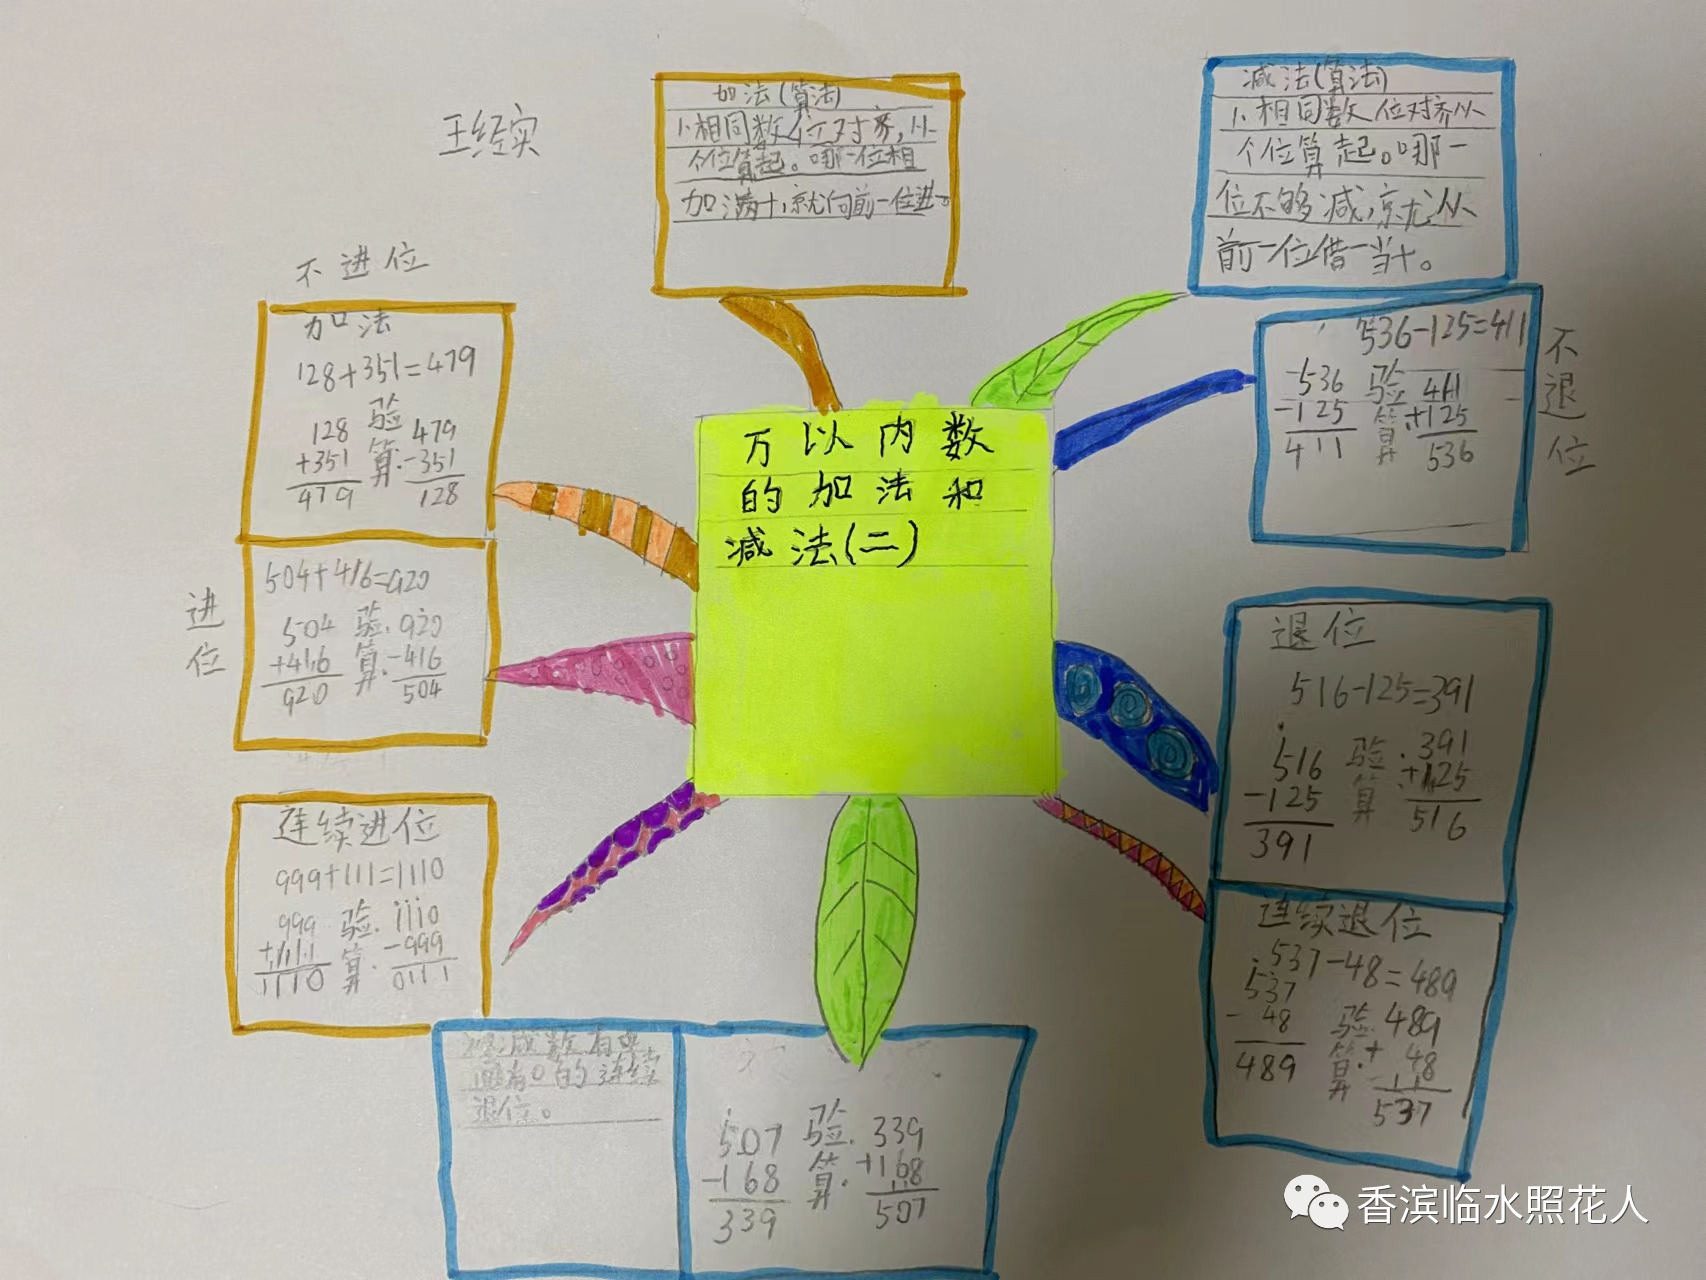 王经实
加法(算法)
1.相同数位对齐,从
个位算起。哪一位相
加满十,就向前一位进一
减法(算法)
1.相同数位对齐从
个位算起。哪一
位不够减,就从
前一位借一当十。
不进位
加法
128+351=479
128 验 479
+351 算 -351
479 128
进位
504+416=920
504 验 920
+416 算 -416
920 504
连续进位
999+111=1110
999 验 1110
+111 算 -999
1110 0111
万以内数
的加法和
减法(二)
不退位
536-125=411
536 验 411
-125 算 +125
411 536
退位
516-125=391
516 验 391
-125 算 +125
391 516
连续退位
537-48=489
537
-48 验 489
489 算 +48
537
减数
0的连续
退位。
507 验 339
-168 算 +168
339 507
香滨临水照花人